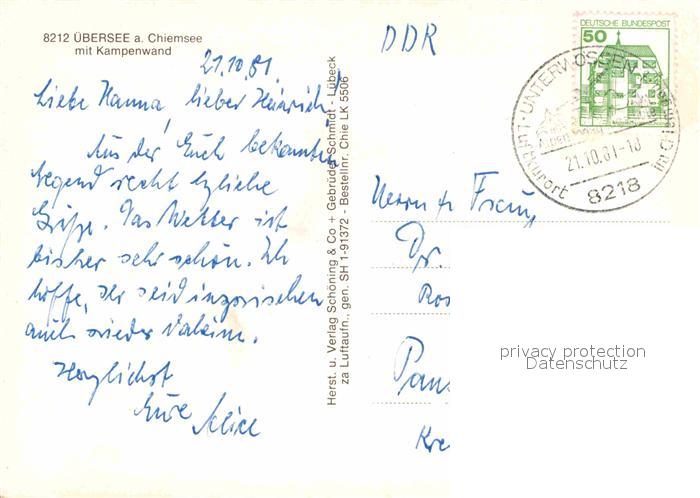 8212 ÜBERSEE a. Chiemsee
mit Kampenwand
21.10.81.
Liebe Hanna, lieber Heinrich,
Aus der Euch bekannten
Gegend recht herzliche
Grüße. Das Wetter ist
bisher sehr schön. Ich
hoffe, Ihr seid inzwischen
auch wieder daheim.
Herzlichst
Eure Alice
Herst. u. Verlag Schöning & Co + Gebrüder Schmidt - Lübeck
za Luftaufn., gen. SH 1-91372 - Bestellnr. Chie LK 5506
DDR
DEUTSCHE BUNDESPOST
50
UNTERWÖSSEN
Luftkurort
21.10.81-18
8218
Dr.
privacy protection
Datenschutz